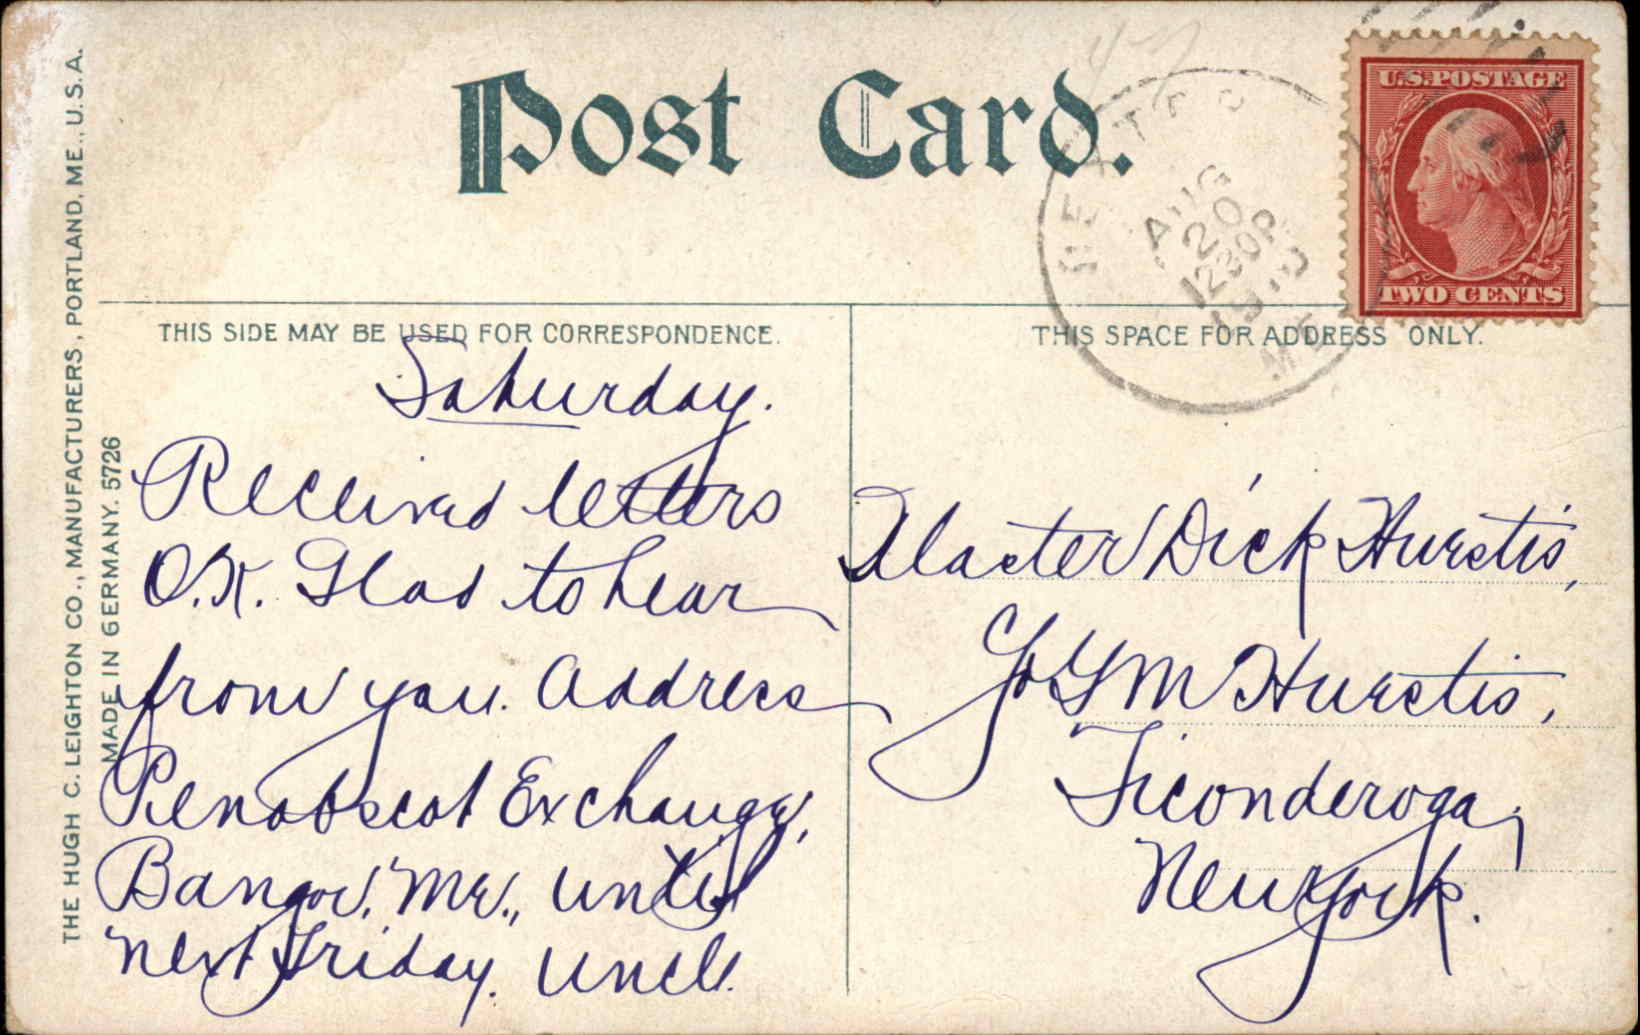 Post Card.
U.S. POSTAGE
TWO CENTS
AUG
20
1230P
ME
THE HUGH C. LEIGHTON CO., MANUFACTURERS, PORTLAND, ME., U.S.A.
MADE IN GERMANY. 5726
THIS SIDE MAY BE USED FOR CORRESPONDENCE.
Saturday.
Received letters
O.K. Glad to hear
from you. Address
Penobscot Exchange,
Bangor, Me., until
next Friday. Uncle.
THIS SPACE FOR ADDRESS ONLY.
Master Dick Hurstis,
℅ G M Hurstis,
Ticonderoga,
New York.